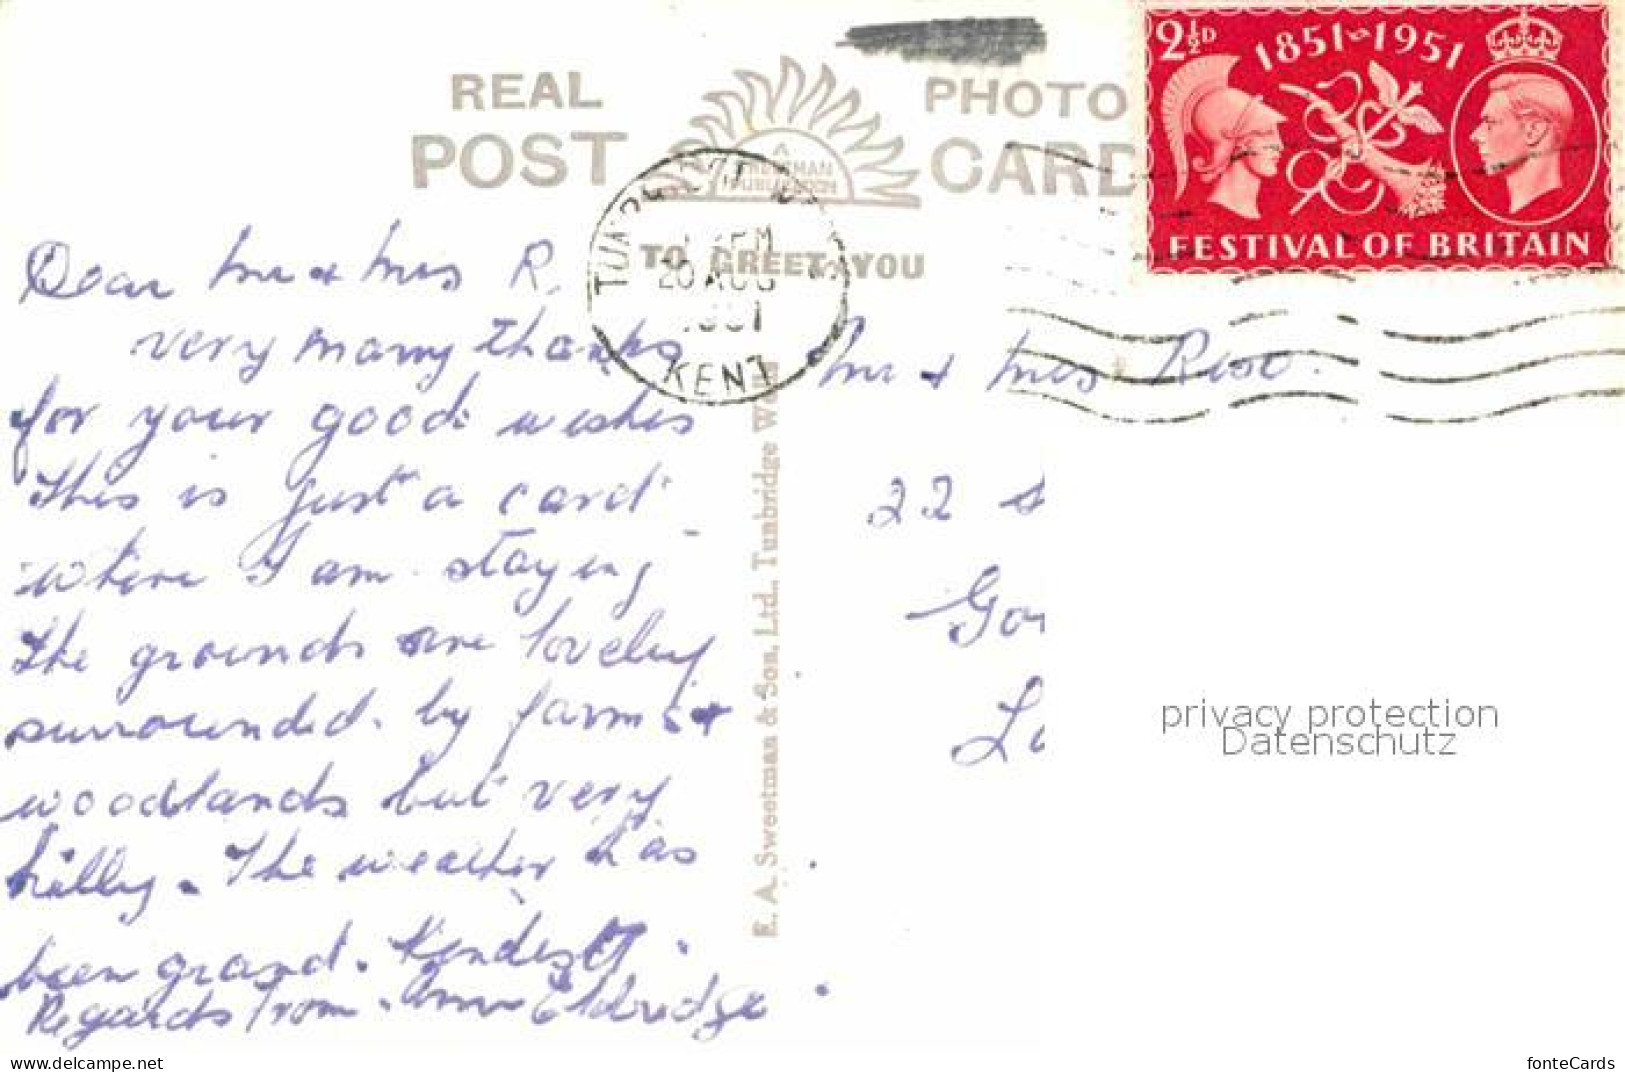 2½D
1851~1951
FESTIVAL OF BRITAIN
REAL PHOTO
POST CARD
A
SWEETMAN
PUBLICATION
TO GREET YOU
PM
20 AUG
1951
KENT
Dear Mr & Mrs R.
very many thanks
for your good wishes
This is just a card
where I am staying
The grounds are lovely
surrounded by farms &
woodlands but very
hilly. The weather has
been grand. Kindest
Regards from Eldridge
E. A. Sweetman & Son, Ltd., Tunbridge Wells
Mr & Mrs
22 S
Go
Lo
privacy protection
Datenschutz
fonteCards
https://www.delcampe.net